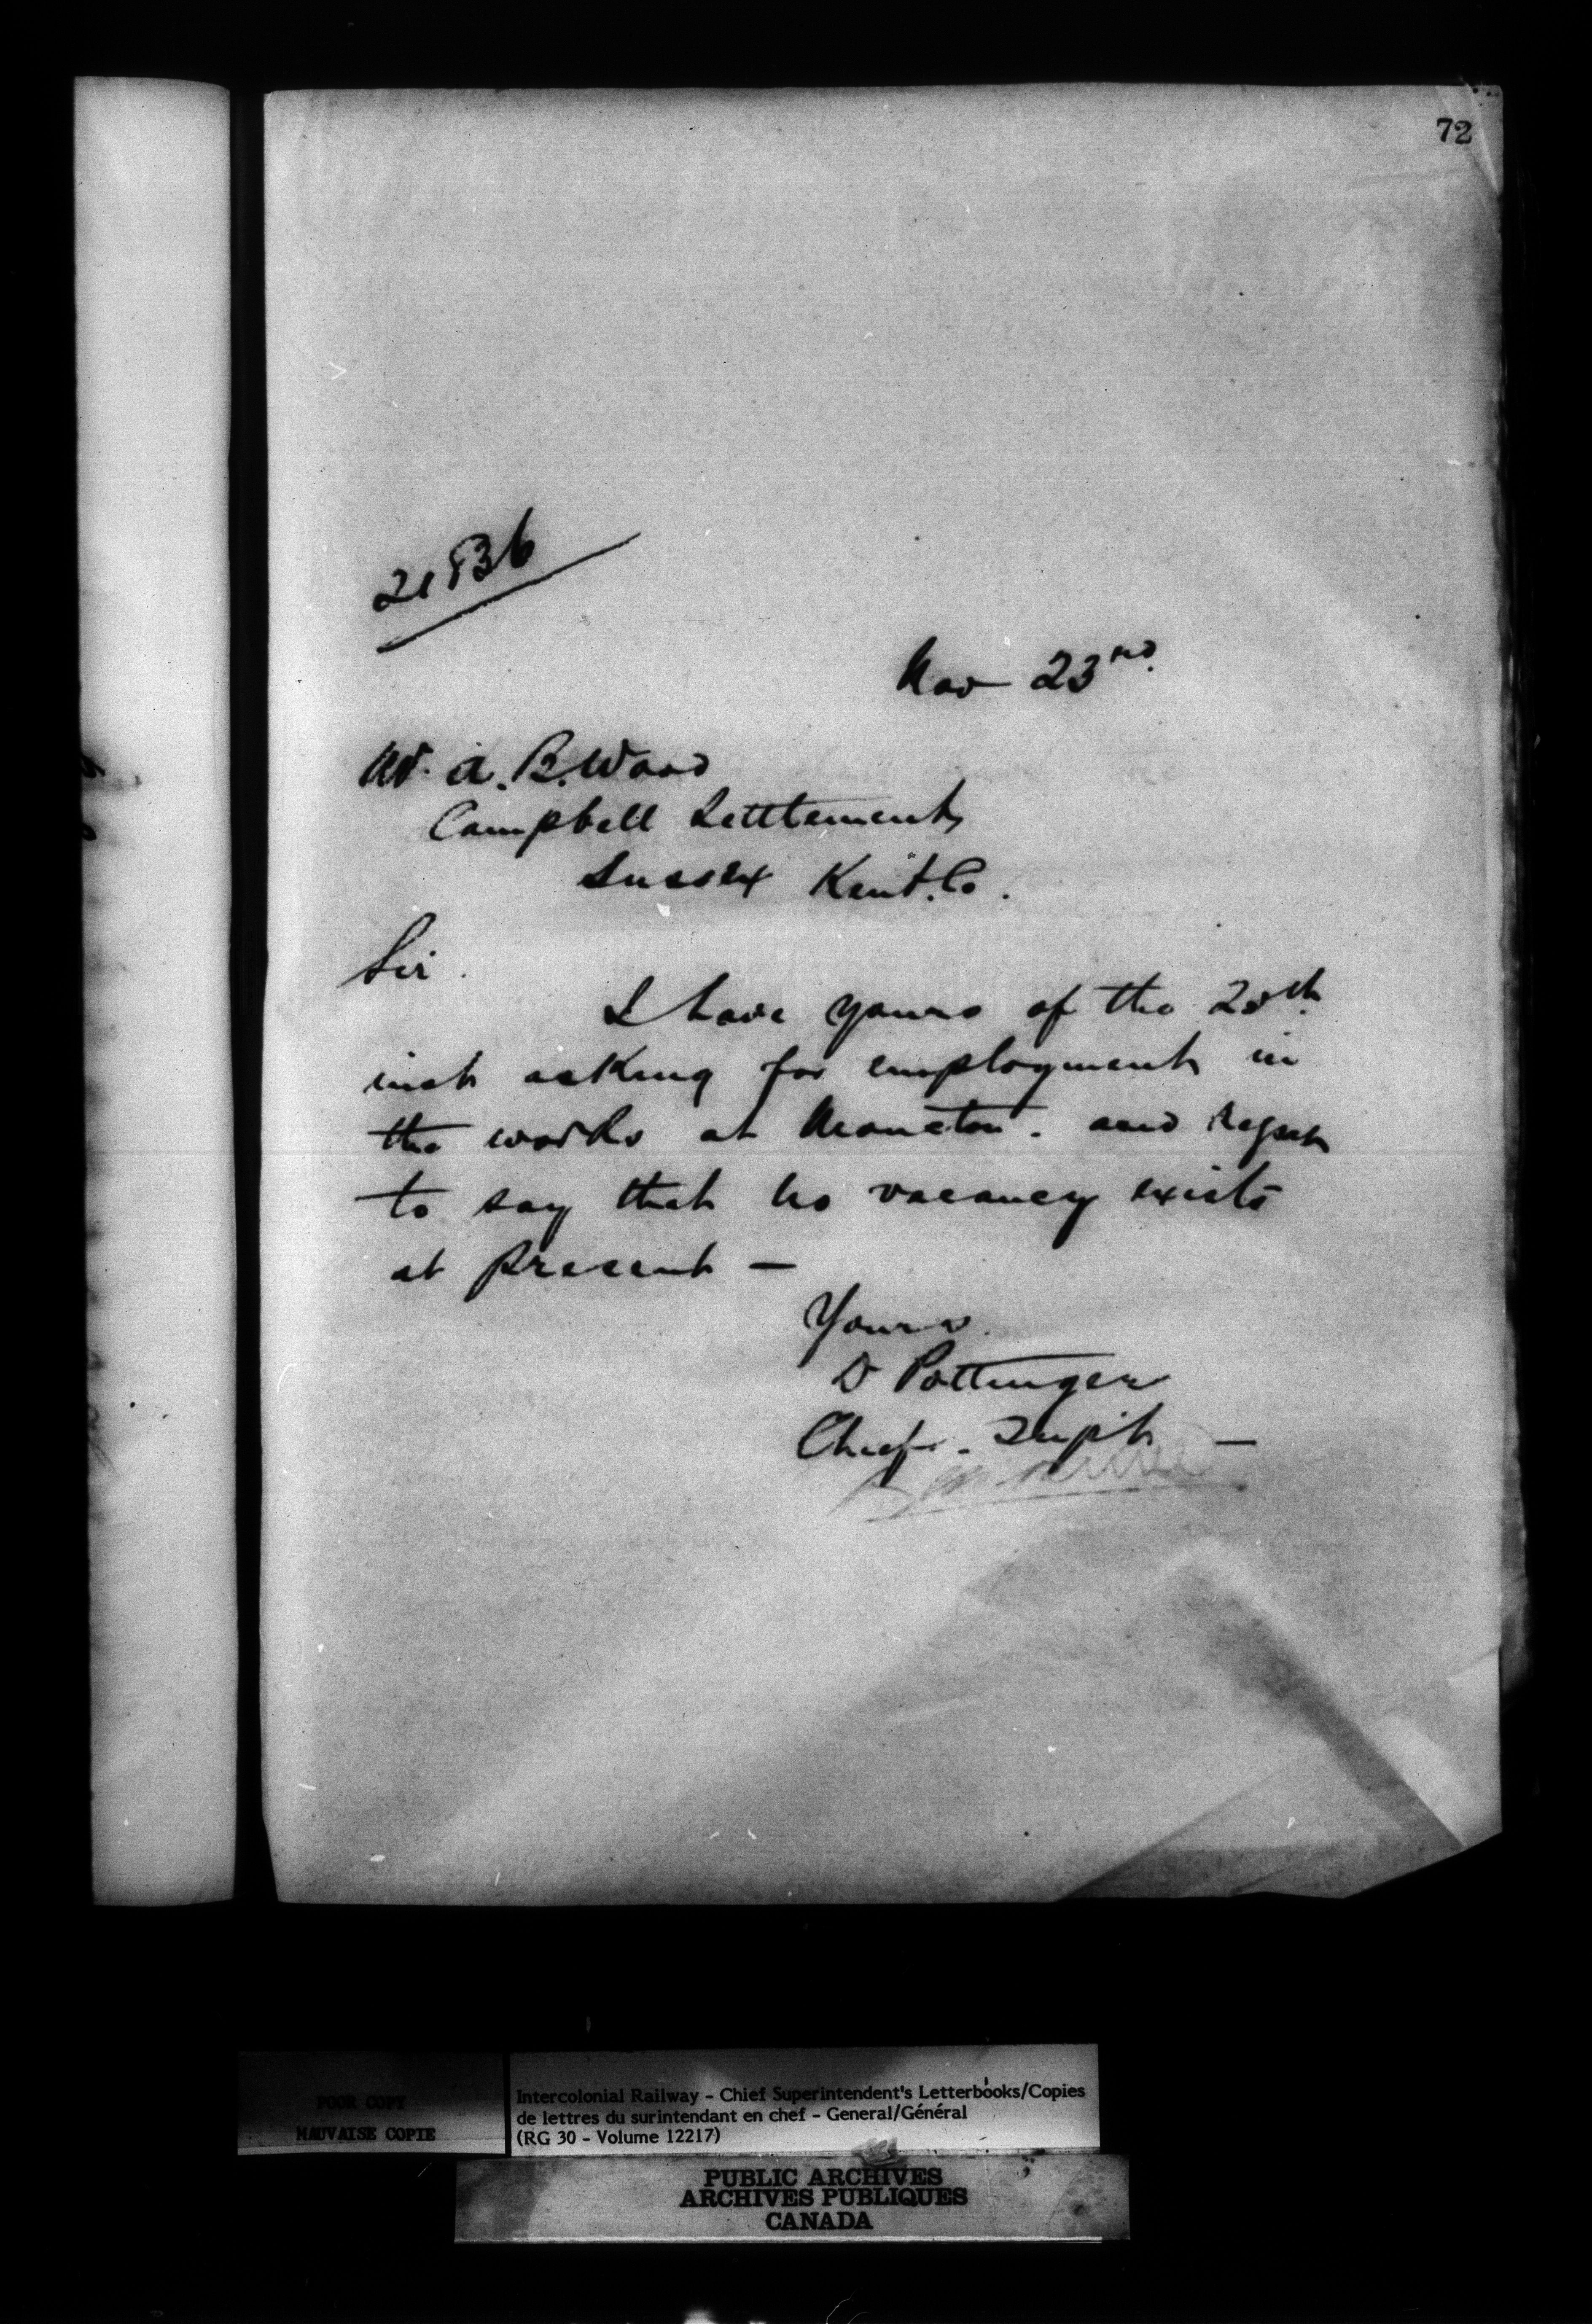 72
21836
Nov 23rd.
Mr. A. B. Wood
Campbell Settlement
Sussex Kent. Co.
Sir.
I have yours of the 20th.
inst asking for employment in
the works at Moncton. and regret
to say that no vacancy exists
at present —
Yours.
D Pottinger
Chief. Supt —
POOR COPY
MAUVAISE COPIE
Intercolonial Railway - Chief Superintendent's Letterbooks/Copies
de lettres du surintendant en chef - General/Général
(RG 30 - Volume 12217)
PUBLIC ARCHIVES
ARCHIVES PUBLIQUES
CANADA